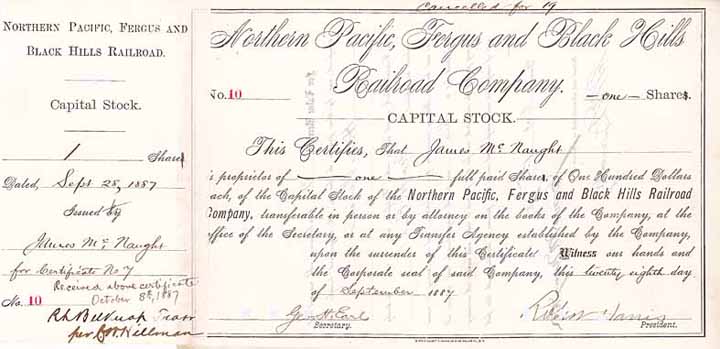 Northern Pacific, Fergus and
Black Hills Railroad.
Capital Stock.
1 Share
Dated, Sept 28, 1887
Issued
James McNaught
for Certificate No 7
Received above certificate
October 8th, 1887
No. 10
per Hillman
Cancelled for 19
Northern Pacific, Fergus and Black Hills
Railroad Company.
No. 10 -one- Shares.
CAPITAL STOCK.
This Certifies, That James McNaught
is proprietor of one full paid Shares, of One Hundred Dollars
each, of the Capital Stock of the Northern Pacific, Fergus and Black Hills Railroad
Company, transferable in person or by attorney on the books of the Company, at the
office of the Secretary, or at any Transfer Agency established by the Company,
upon the surrender of this Certificate. Witness our hands and
the Corporate seal of said Company, this twenty eighth day
of September 1887
Geo. H. Earl Robert Harris
Secretary. President.